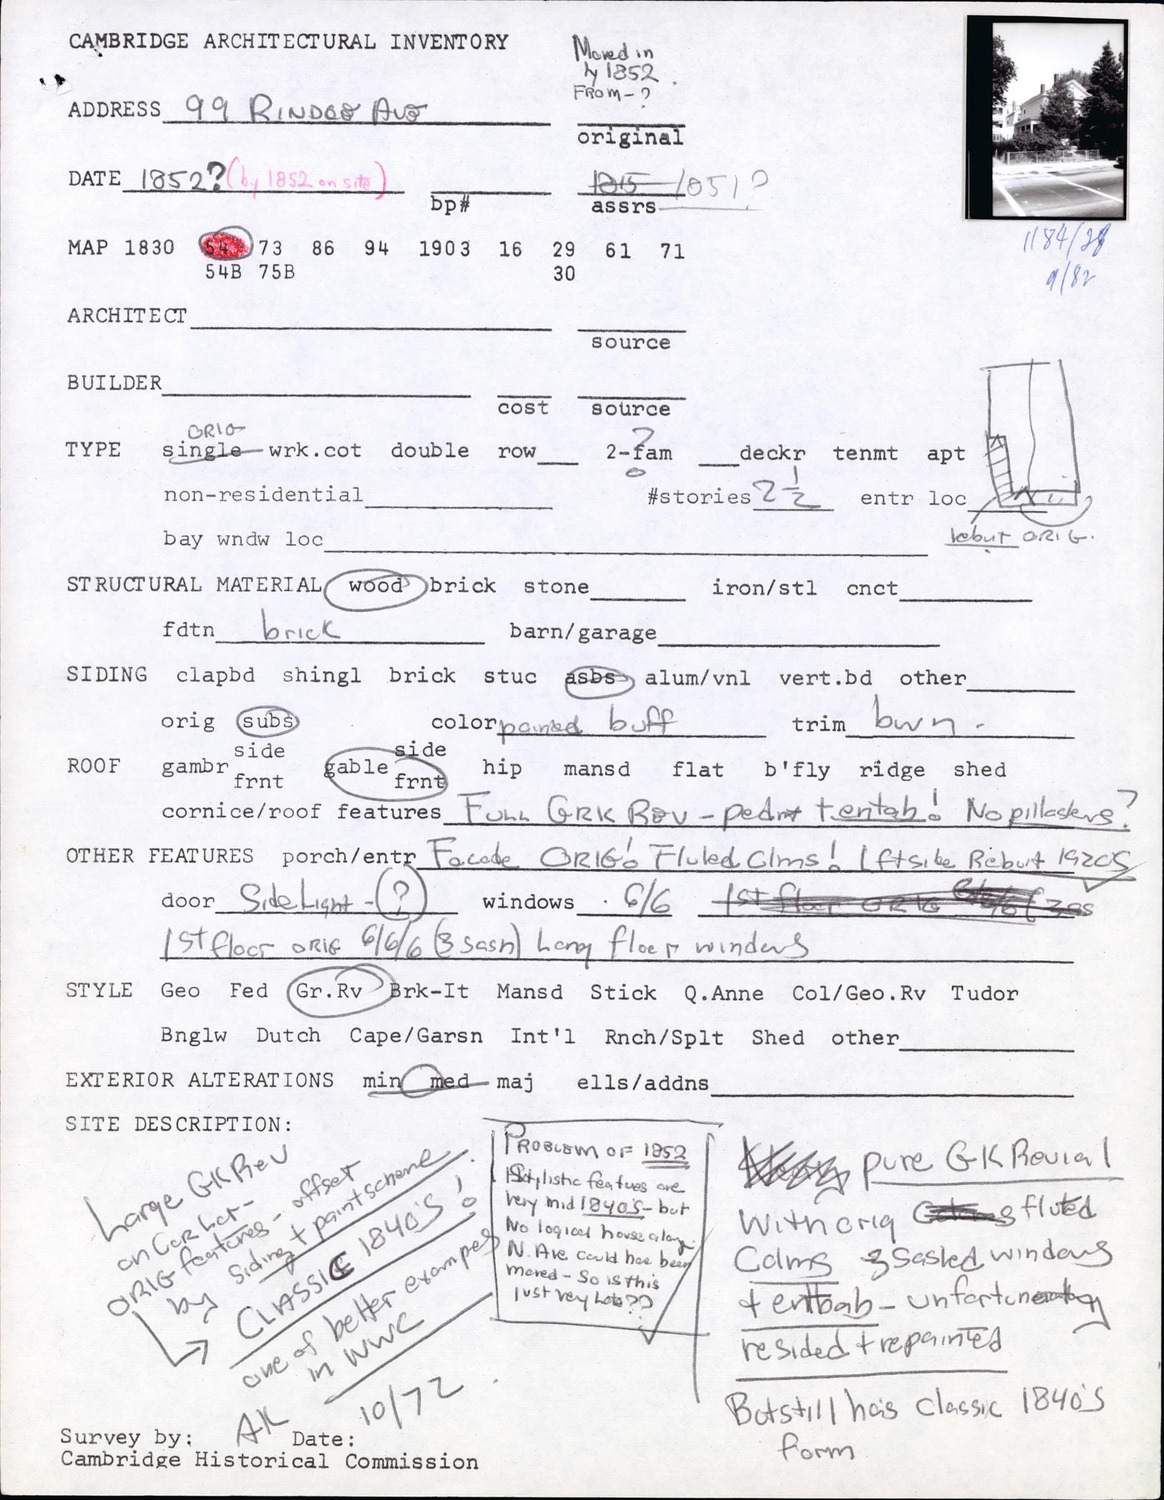 CAMBRIDGE ARCHITECTURAL INVENTORY
Moved in
by 1852
FROM-?
ADDRESS 99 RINDGE AVE
original
DATE 1852? (by 1852 on site)
bp#
1851?
assrs
1184/28
9/82
MAP 1830 54 73 86 94 1903 16 29 61 71
54B 75B 30
ARCHITECT
source
BUILDER
cost source
ORIG
TYPE single wrk.cot double row 2-fam ? deckr tenmt apt
non-residential #stories 2 1/2 entr loc
rebuit ORIG.
bay wndw loc
STRUCTURAL MATERIAL wood brick stone iron/stl cnct
fdtn brick barn/garage
SIDING clapbd shingl brick stuc asbs alum/vnl vert.bd other
orig subs color pained buff trim bwn.
side side
ROOF gambr gable hip mansd flat b'fly ridge shed
frnt frnt
cornice/roof features FULL GRK REV - pedmt + entab! No pillasters?
OTHER FEATURES porch/entr Facade ORIG! Fluted Clms! Lftside Rebuit 1920S
door SideLight - ? windows 6/6 1st floor ORIG 6/6/6
1st floor ORIG 6/6/6 (3 sash) Long floor windows
STYLE Geo Fed Gr.Rv Brk-It Mansd Stick Q.Anne Col/Geo.Rv Tudor
Bnglw Dutch Cape/Garsn Int'l Rnch/Splt Shed other
EXTERIOR ALTERATIONS min med maj ells/addns
SITE DESCRIPTION:
Large GK Rev
on Cor Lot -
ORIG features - offset
by siding + paint scheme
CLASSIC 1840'S!
one of better exampes
in NWC
PROBLEM OF 1852
Stylistic features are
very mid 1840'S - but
No logical house along
N. Ave could hae been
moved - So is this
just very late??
pure GK Revial
With orig fluted
Colms 3 sashed windows
+ entbab - unfortunatey
resided + repainted
But still has classic 1840'S
form
Survey by: AK Date: 10/72
Cambridge Historical Commission